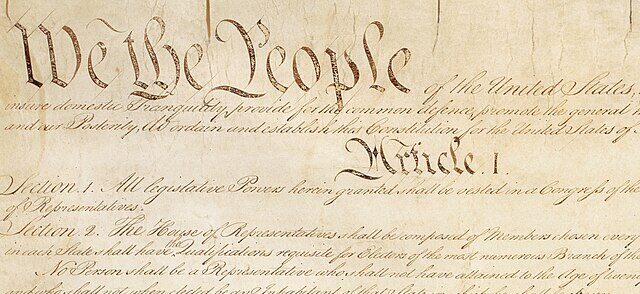 We the People of the United States,
insure domestic Tranquility, provide for the common defence, promote the general
and our Posterity, do ordain and establish this Constitution for the United States of
Article. I.
Section. 1. All legislative Powers herein granted shall be vested in a Congress of the
of Representatives.
Section. 2. The House of Representatives shall be composed of Members chosen every
in each State shall have the Qualifications requisite for Electors of the most numerous Branch of the
No Person shall be a Representative who shall not have attained to the Age of twen
and who shall not, when elected, be an Inhabitant of that State in which he shall